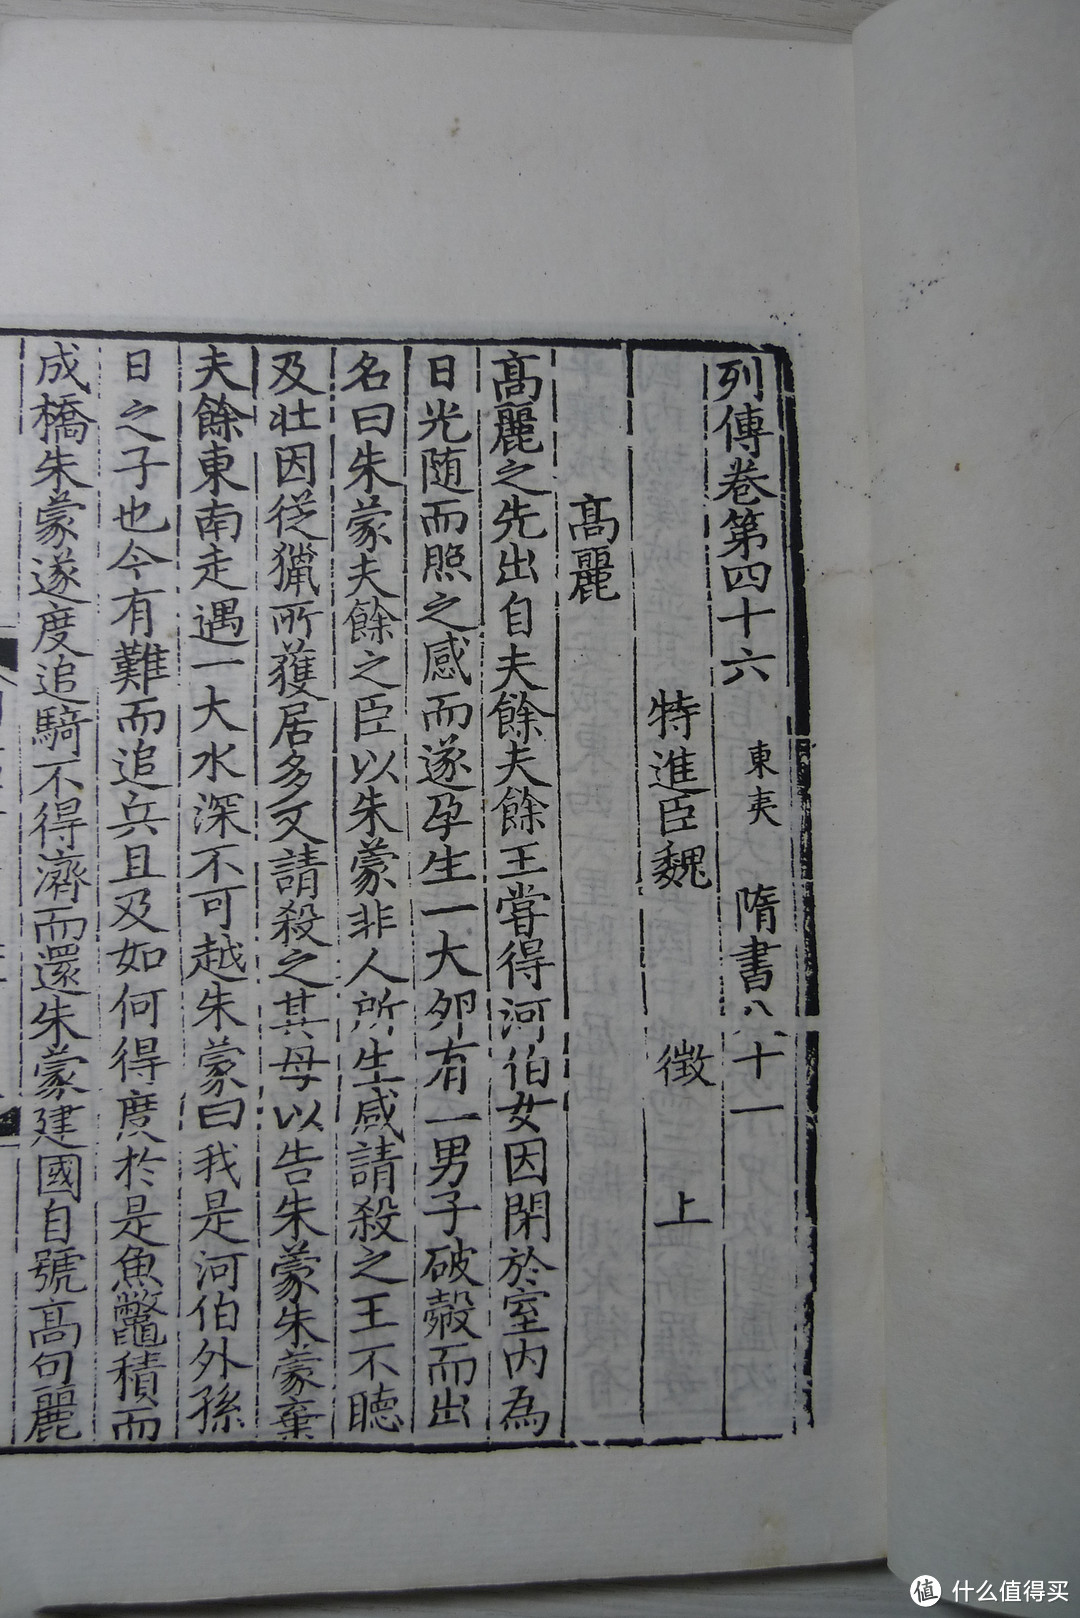 列傳卷第四十六 東夷 隋書八十一
特進臣魏 徵 上
髙麗
髙麗之先出自夫餘夫餘王嘗得河伯女因閉於室内為
日光随而照之感而遂孕生一大卵有一男子破殼而出
名曰朱蒙夫餘之臣以朱蒙非人所生咸請殺之王不聽
及壯因從獵所獲居多又請殺之其母以告朱蒙朱蒙棄
夫餘東南走遇一大水深不可越朱蒙曰我是河伯外孫
日之子也今有難而追兵且及如何得度於是魚鼈積而
成橋朱蒙遂度追騎不得濟而還朱蒙建國自號髙句麗
值 什么值得买